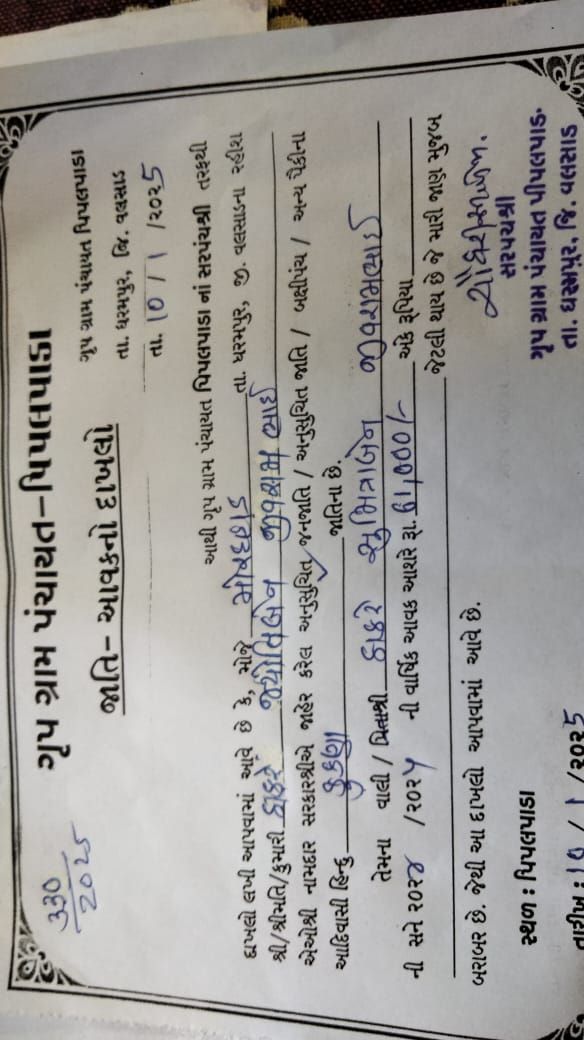 ગૃપ ગ્રામ પંચાયત-પિપલપાડા
330
2025
જાતિ - આવકનો દાખલો
ગૃપ ગ્રામ પંચાયત પિપલપાડા
તા. ધરમપુર, જિ. વલસાડ
તા. 10 / 1 /૨૦૨5
આથી ગૃપ ગ્રામ પંચાયત પિપલપાડા નાં સરપંચશ્રી તરફથી
દાખલો લખી આપવામાં આવે છે કે, મોજે તા. ધરમપુર, જી. વલસાડના રહીશ
શ્રી/શ્રીમતિ/કુમારી ઠાકરે જ્યોતિબેન જીવરામભાઈ
એઓશ્રી નામદાર સરકારશ્રીએ જાહેર કરેલ અનુસુચિત જનજાતિ / અનુસુચિત જાતિ / બક્ષીપંચ / અન્ય પૈકીના
આદિવાસી હિન્દુ કુકણા જાતિના છે.
તેમના વાલી / પિતાશ્રી ઠાકરે સુમિત્રાબેન જીવરામભાઈ
ની સને ૨૦૨૪ /૨૦૨૫ ની વાર્ષિક આવક આશરે રૂા. 61,000/- અંકે રૂપિયા
જેટલી થાય છે જે મારી જાણ મુજબ
બરાબર છે. જેથી આ દાખલો આપવામાં આવે છે.
સ્થળ : પિપલપાડા
તારીખ : 10 / 1 /૨૦૨5
સરપંચશ્રી
ગૃપ ગ્રામ પંચાયત પીપલપાડ.
તા. ધરમપુર, જિ. વલસાડ